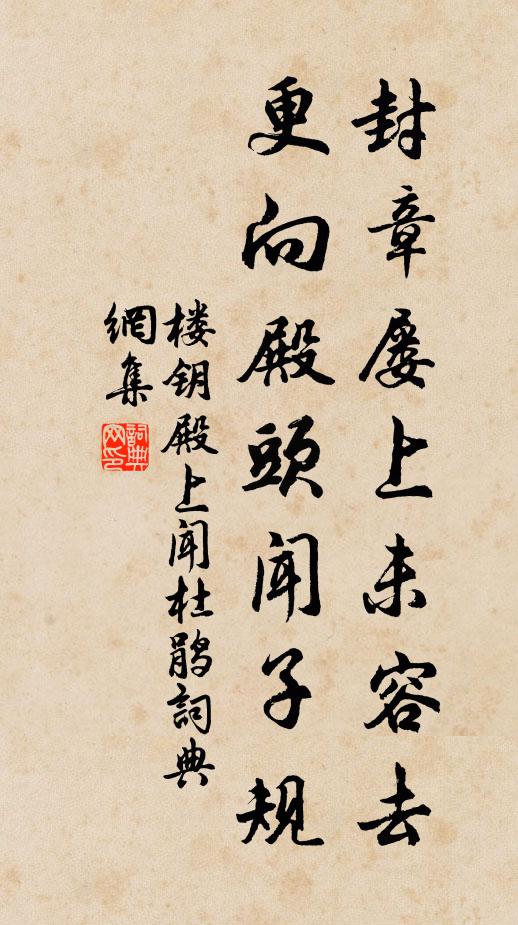 封章屡上未容去
更向殿頭闻子规
楼钥殿上闻杜鹃詞典
網集
詞典
网印